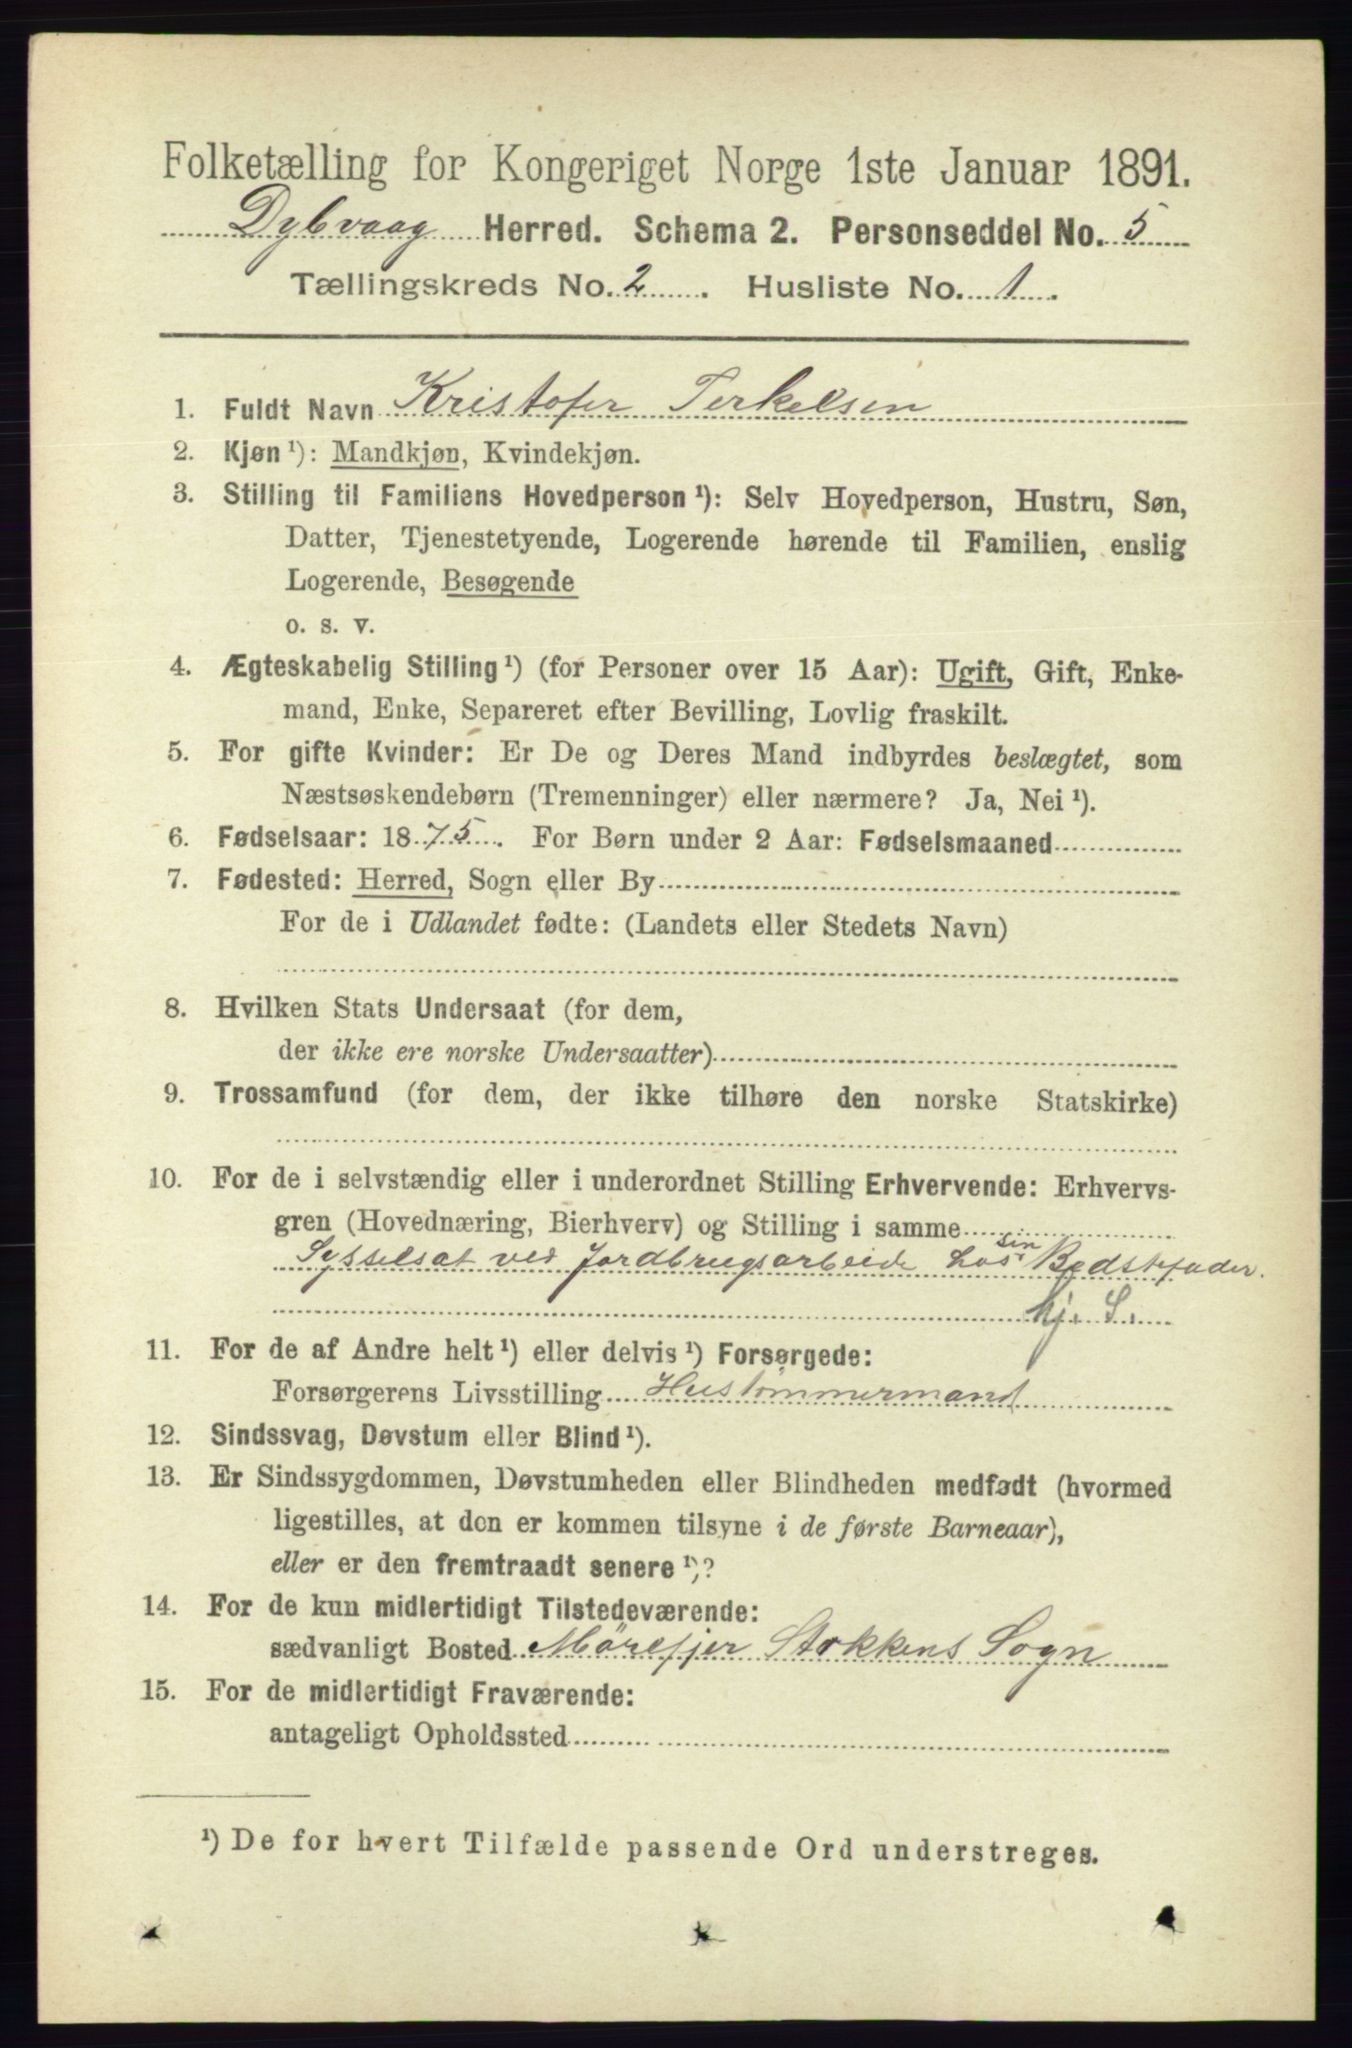 Folketælling for Kongeriget Norge 1ste Januar 1891.
Dybvaag Herred. Schema 2. Personseddel No. 5
Tællingskreds No. 2. Husliste No. 1.
1. Fuldt Navn Kristofer Terkelsen
2. Kjøn ¹): Mandkjøn, Kvindekjøn.
3. Stilling til Familiens Hovedperson ¹): Selv Hovedperson, Hustru, Søn,
Datter, Tjenestetyende, Logerende hørende til Familien, enslig
Logerende, Besøgende
o. s. v.
4. Ægteskabelig Stilling ¹) (for Personer over 15 Aar): Ugift, Gift, Enke-
mand, Enke, Separeret efter Bevilling, Lovlig fraskilt.
5. For gifte Kvinder: Er De og Deres Mand indbyrdes beslægtet, som
Næstsøskendebørn (Tremenninger) eller nærmere? Ja, Nei ¹).
6. Fødselsaar: 1875. For Børn under 2 Aar: Fødselsmaaned
7. Fødested: Herred, Sogn eller By
For de i Udlandet fødte: (Landets eller Stedets Navn)
8. Hvilken Stats Undersaat (for dem,
der ikke ere norske Undersaatter)
9. Trossamfund (for dem, der ikke tilhøre den norske Statskirke)
10. For de i selvstændig eller i underordnet Stilling Erhvervende: Erhvervs-
gren (Hovednæring, Bierhverv) og Stilling i samme
Sysselsat ved Jordbrugsarbeide hos sin Bedstefader.
hj. S.
11. For de af Andre helt ¹) eller delvis ¹) Forsørgede:
Forsørgerens Livsstilling Hustømmermand
12. Sindssvag, Døvstum eller Blind ¹).
13. Er Sindssygdommen, Døvstumheden eller Blindheden medfødt (hvormed
ligestilles, at den er kommen tilsyne i de første Barneaar),
eller er den fremtraadt senere ¹)?
14. For de kun midlertidigt Tilstedeværende:
sædvanligt Bosted Mörefjer Stokkens Sogn
15. For de midlertidigt Fraværende:
antageligt Opholdssted
¹) De for hvert Tilfælde passende Ord understreges.